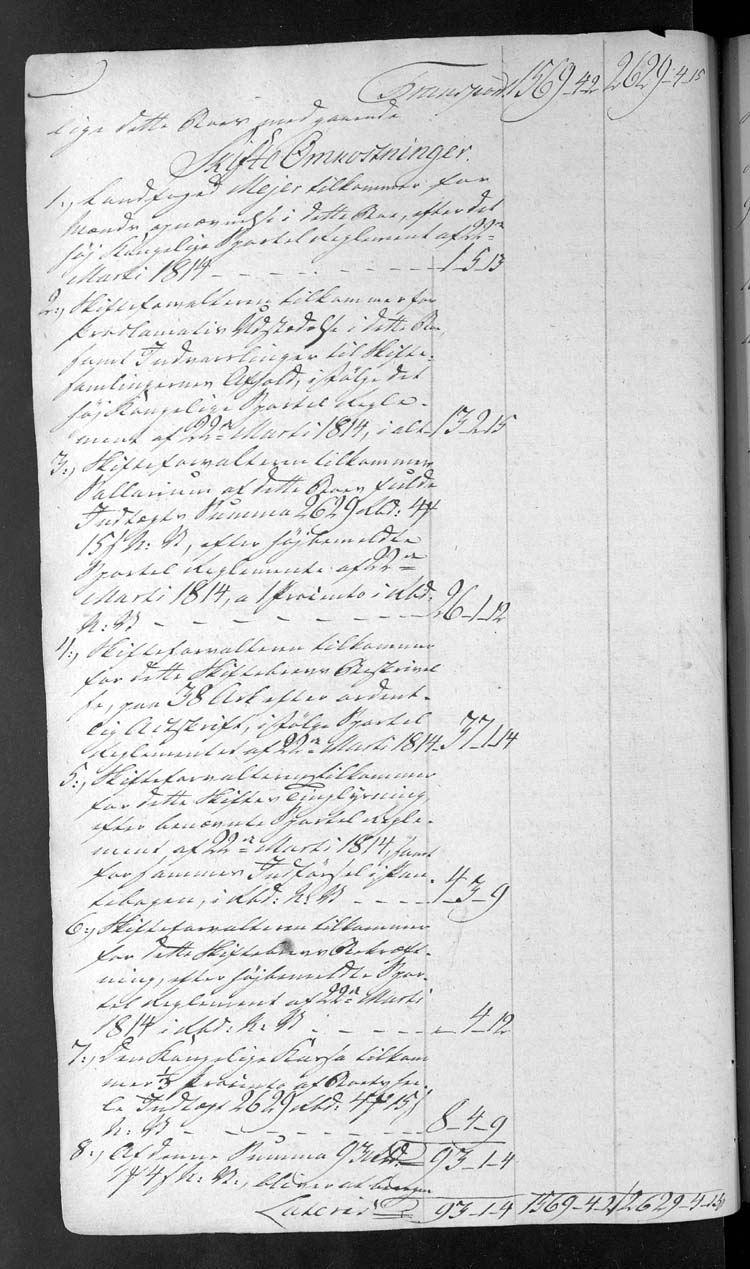 Transport 1569-4-2 2629-4-15
lige dette Boes vedgaaende
Skifte Omkostninger.
1:, Landfoged Mejer tilkommer for
Mænds opnævnelse i dette Boe, efter det
høj Kongelige Sportel Reglement af 22n
Marti 1814 - - - - - 1-5-13
2:, Skifteforvalteren tilkommer for
Proclamatis Udstædelse i dette Boe,
samt Indvarslinger til Skifte-
samlingernes Afhold, ifølge det
høj Kongelige Sportel Regle-
ment af 22n Marti 1814, i alt 13-2-15
3:, Skifteforvalteren tilkommer
Sallarium af dette Boes fulde
Indtægts Summa 2629 Rbd: 4
15 s N: V, efter højbemeldte
Sportel Reglements af 22n
Marti 1814, a 1 Procento i Rbd:
N: V - - - - - 26-1-12
4:, Skifteforvalteren tilkommer
for dette Skiftebrevs Beskrivel
se, paa 38 Ark efter ordent-
lig Actskrift, ifølge Sportel
Reglementet af 22n Marti 1814 37-1-14
5:, Skifteforvalteren tilkommer
for dette Skiftes Tinglysning,
efter benævnte Sportel Regle-
ment af 22n Marti 1814, samt
for sammes Indførsel i Pan
tebogen, i Rbd: N: V - - - - 4-3-9
6:, Skifteforvalteren tilkommer
for dette Skiftebrevs Bekræft-
ning, efter højbemeldte Spor-
tel Reglement af 22n Marti
1814 i Rbd: N: V - - - - - 4-12
7:, Den Kongelige Kassa tilkom
mer 1/3 Procento af Boets hee-
le Indtægt 2629 Rbd: 4 15 s
N: V - - - - - 8-4-9
8:, Af denne Summa 93 Rbd: 93-1-4
1 4 s N: V, bliver at
Lateris 93-1-4 1569-4-2 2629-4-15